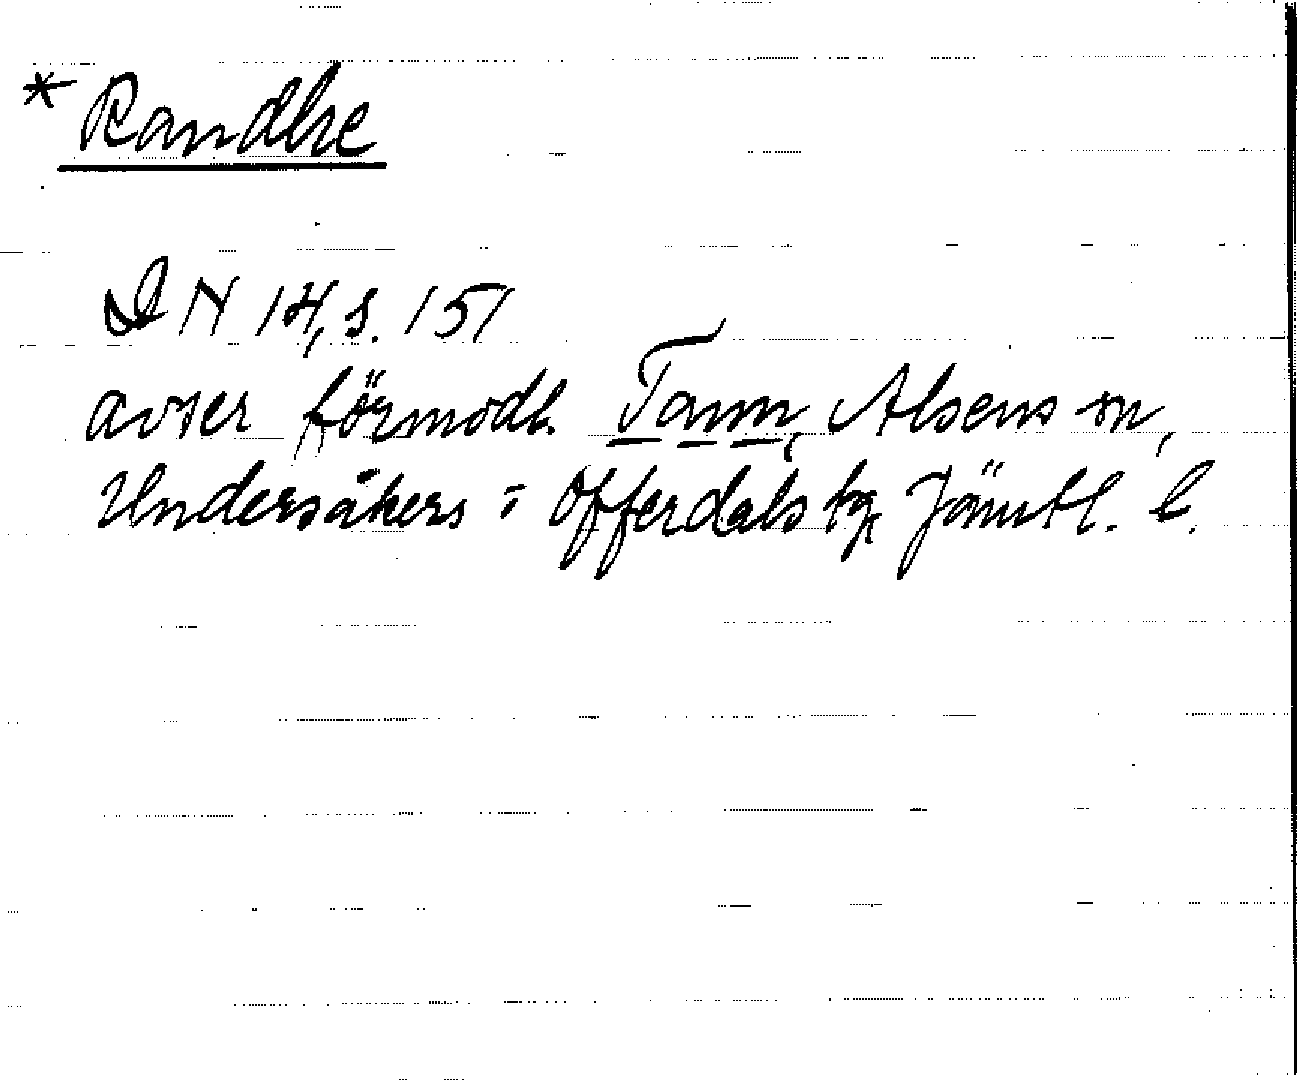 * Randhe
DN 14, s. 151
avser förmodl. Tann, Alsens sn,
Undersåkers o Offerdals tg, Jämtl. l.